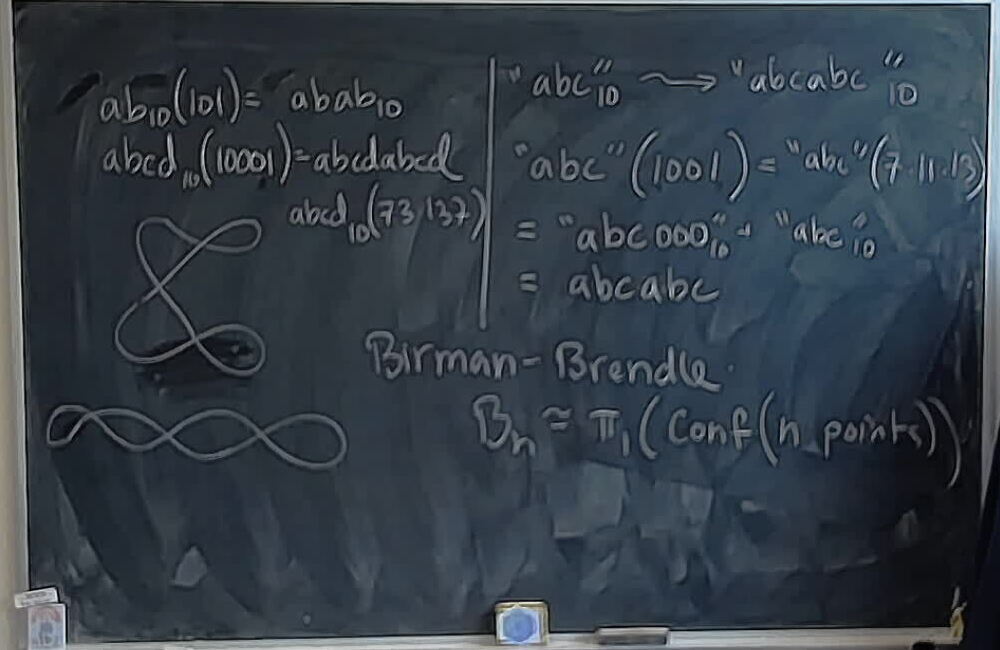 ab₁₀(101) = abab₁₀
abcd₁₀(10001) = abcdabcd
abcd₁₀(73·137)
"abc"₁₀ ⟿ "abcabc"₁₀
"abc"(1001) = "abc"(7·11·13)
= "abc000"₁₀ + "abc"₁₀
= abcabc
Birman-Brendle.
Bₙ ≃ π₁(Conf(n points))